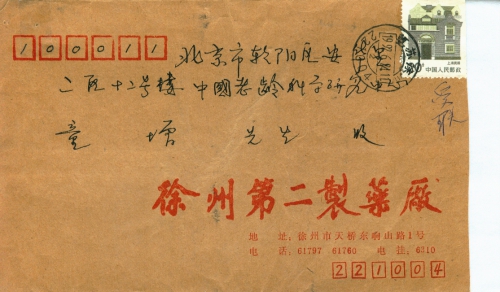 100011
北京市朝阳区安
二区十二号楼 中國老龄科学研究中心
童 增 先生 收
中国人民邮政
徐州第二製药廠
地 址:徐州市天桥东响山路1号
电 话:61797 61760 电 挂:6310
221004